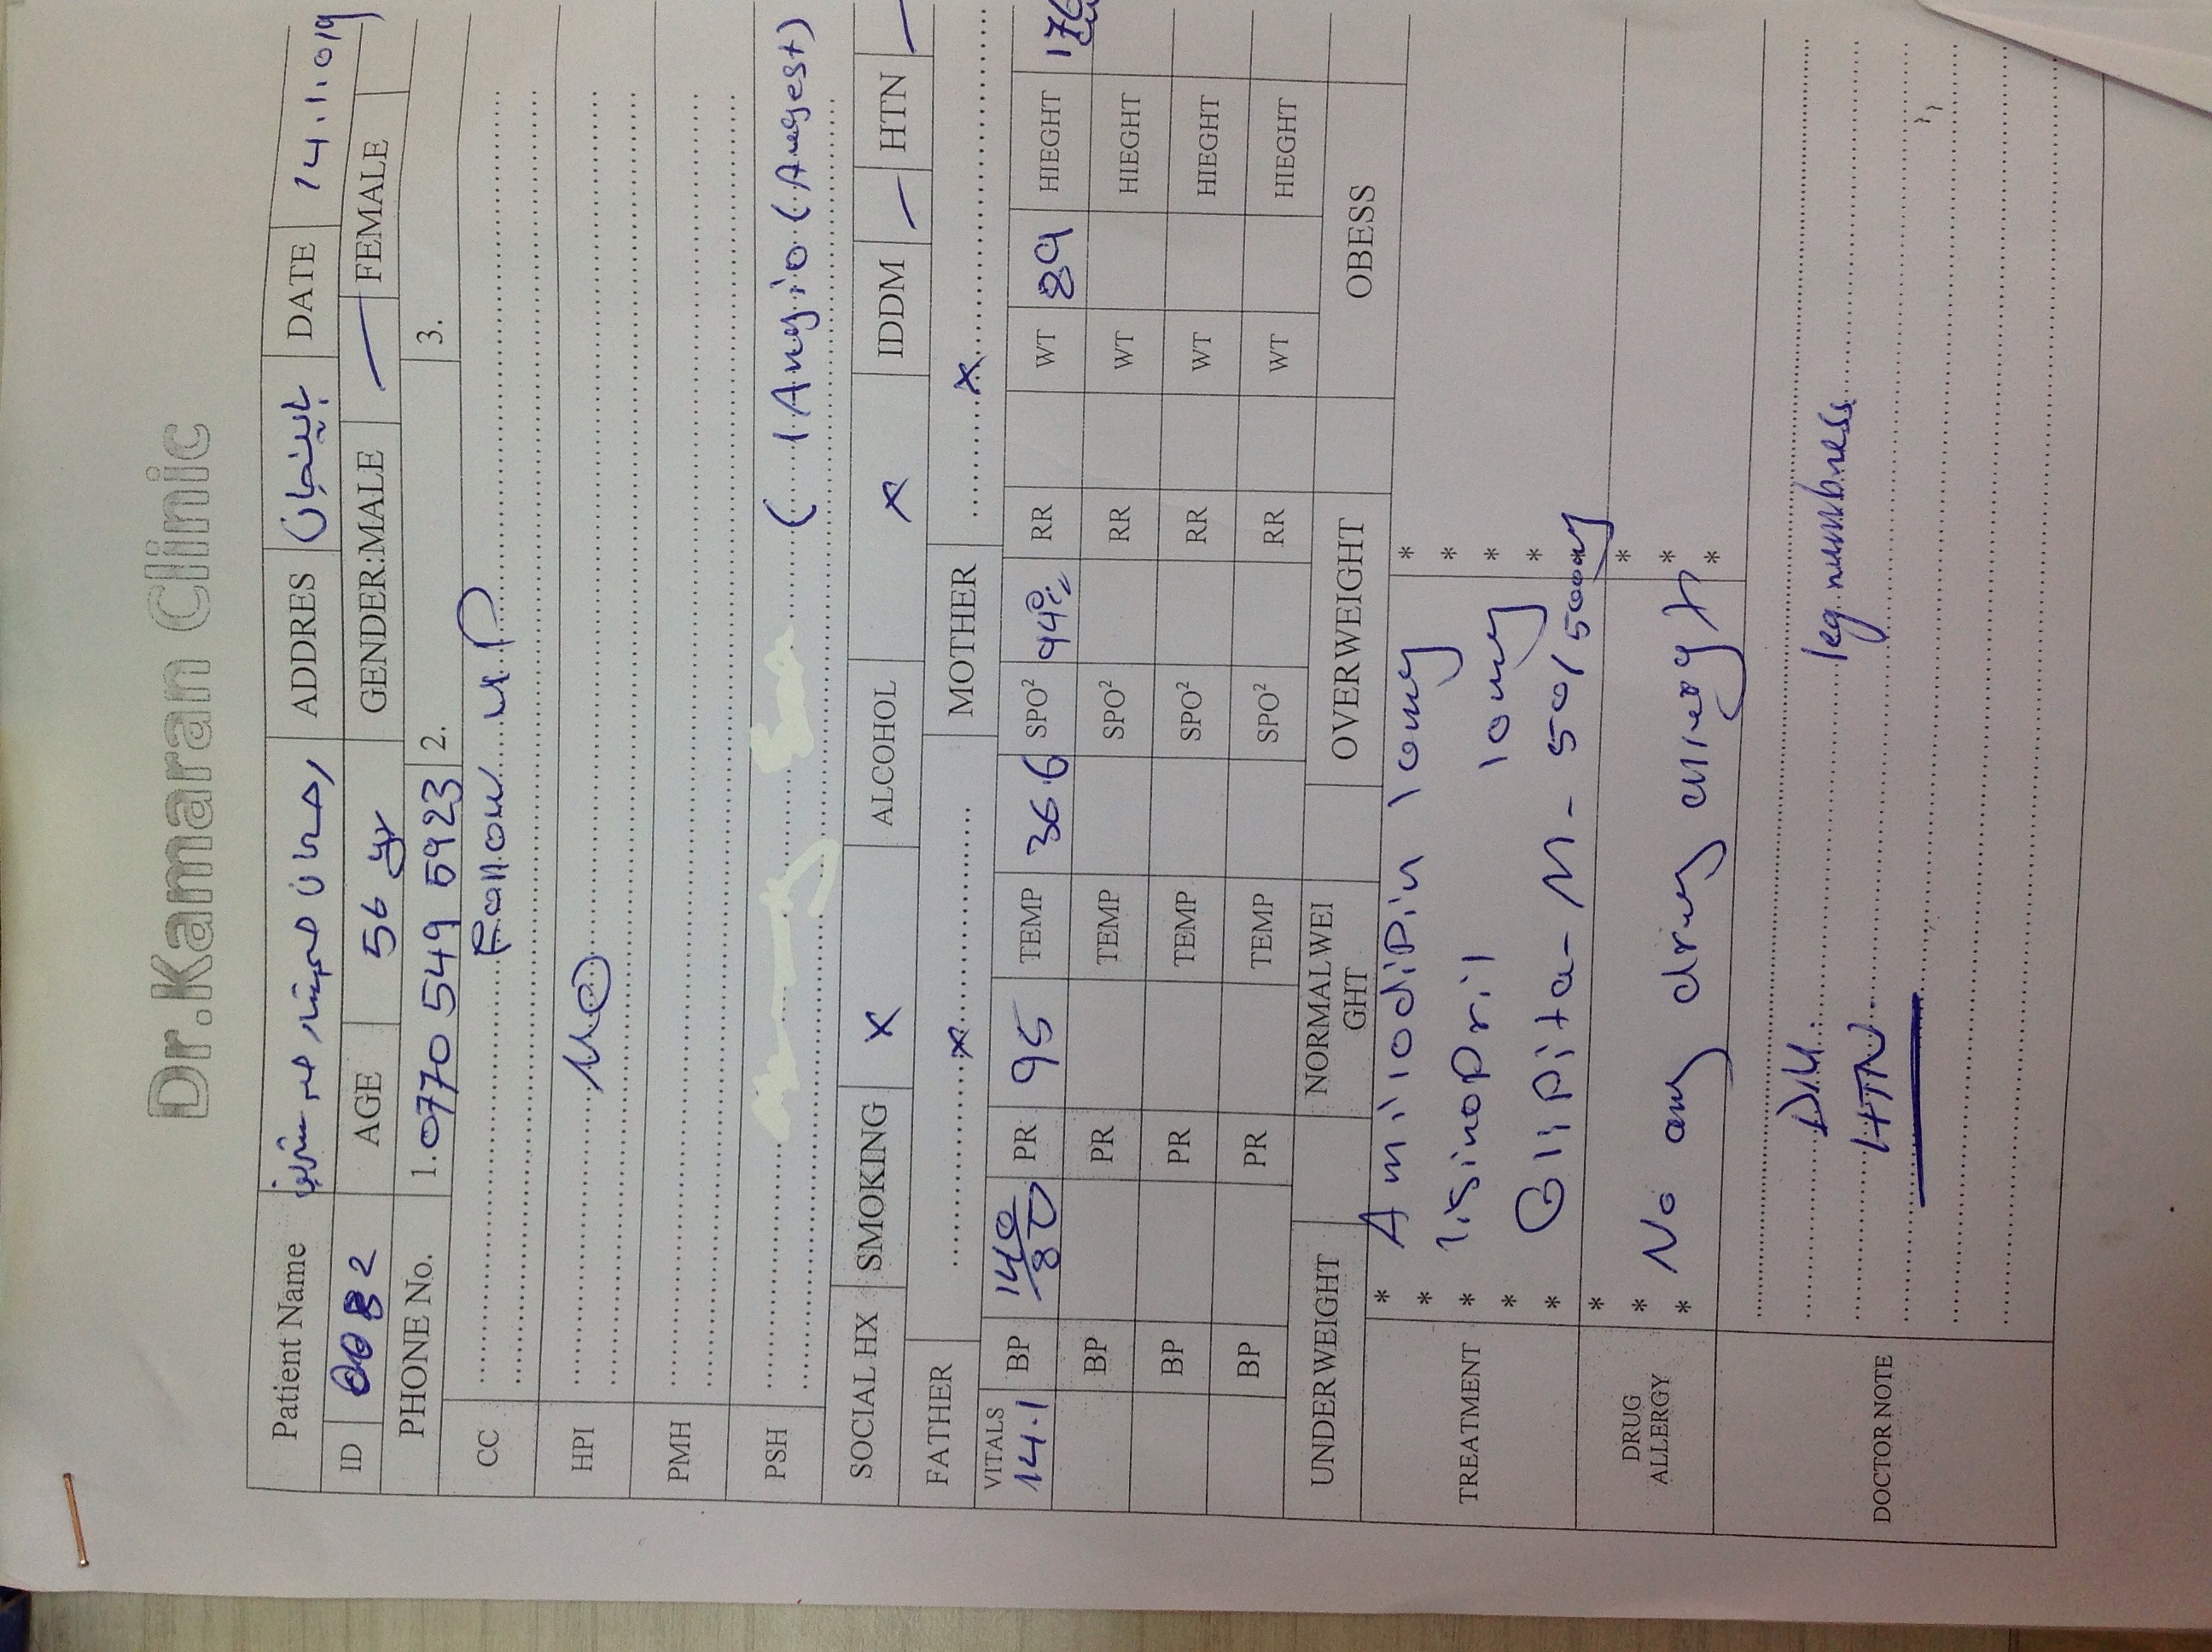 Dr.Kamaran Clinic
Patient Name ADDRES باينجان DATE 14.1.019
ID 0082 AGE 56 yr GENDER:MALE — FEMALE
PHONE No. 1. 0770 549 5923 2. 3.
CC Follow up
HPI
PMH
PSH ( 1 Angio (Augest)
SOCIAL HX SMOKING x ALCOHOL x IDDM — HTN —
FATHER x MOTHER x
VITALS 14.1 BP 140/80 PR 95 TEMP 36.6 SPO² 94% RR WT 89 HIEGHT
BP PR TEMP SPO² RR WT HIEGHT
BP PR TEMP SPO² RR WT HIEGHT
BP PR TEMP SPO² RR WT HIEGHT
UNDERWEIGHT NORMALWEIGHT OVERWEIGHT OBESS
TREATMENT
* Amilodipin 10mg *
* lisinopril 10mg *
* Glipita-M- 50/500mg *
* *
*
DRUG ALLERGY
* *
* No any drug *
* *
DOCTOR NOTE
D.M. leg numbness
HTN